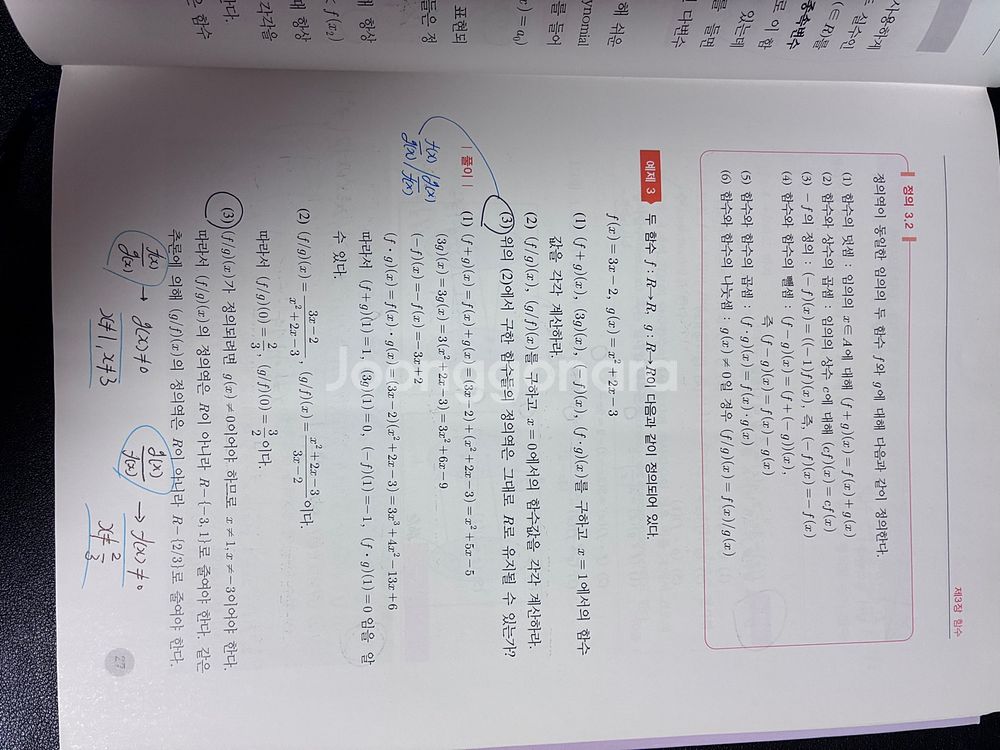 제3장 함수
정의 3.2
정의역이 동일한 임의의 두 함수 f와 g에 대해 다음과 같이 정의한다.
(1) 함수의 덧셈 : 임의의 x∈A에 대해 (f+g)(x)=f(x)+g(x)
(2) 함수와 상수의 곱셈 : 임의의 상수 c에 대해 (cf)(x)=cf(x)
(3) −f의 정의 : (−f)(x)=((−1)f)(x), 즉, (−f)(x)=−f(x)
(4) 함수와 함수의 뺄셈 : (f−g)(x)=(f+(−g))(x),
즉 (f−g)(x)=f(x)−g(x)
(5) 함수와 함수의 곱셈 : (f·g)(x)=f(x)·g(x)
(6) 함수와 함수의 나눗셈 : g(x)≠0일 경우 (f/g)(x)=f(x)/g(x)
예제 3 두 함수 f : R→R, g : R→R이 다음과 같이 정의되어 있다.
f(x)=3x−2, g(x)=x²+2x−3
(1) (f+g)(x), (3g)(x), (−f)(x), (f·g)(x)를 구하고 x=1에서의 함수
값을 각각 계산하라.
(2) (f/g)(x), (g/f)(x)를 구하고 x=0에서의 함수값을 각각 계산하라.
(3) 위의 (2)에서 구한 함수들의 정의역은 그대로 R로 유지될 수 있는가?
f(x)/g(x)
g(x)/f(x)
| 풀이 | (1) (f+g)(x)=f(x)+g(x)=(3x−2)+(x²+2x−3)=x²+5x−5
(3g)(x)=3g(x)=3(x²+2x−3)=3x²+6x−9
(−f)(x)=−f(x)=−3x+2
(f·g)(x)=f(x)·g(x)=(3x−2)(x²+2x−3)=3x³+4x²−13x+6
따라서 (f+g)(1)=1, (3g)(1)=0, (−f)(1)=−1, (f·g)(1)=0 임을 알
수 있다.
(2) (f/g)(x)=(3x−2)/(x²+2x−3), (g/f)(x)=(x²+2x−3)/(3x−2)이다.
따라서 (f/g)(0)=2/3, (g/f)(0)=3/2이다.
(3) (f/g)(x)가 정의되려면 g(x)≠0이어야 하므로 x≠1, x≠−3이어야 한다.
따라서 (f/g)(x)의 정의역은 R이 아니라 R−{−3, 1}로 줄여야 한다. 같은
추론에 의해 (g/f)(x)의 정의역은 R이 아니라 R−{2/3}로 줄여야 한다.
f(x)/g(x) → g(x)≠0 g(x)/f(x) → f(x)≠0
x≠1, x≠3 x≠2/3
27
사용하게
실수인
(∈R)를
종속변수
로 이 함
있는데
를 들면
인 다변수
해 쉬운
ynomial
를 들어
r)=a₀)
표현되
들은 정
해 항상
f(x₂)
대 항상
각각을
은 함수
Joonggonara